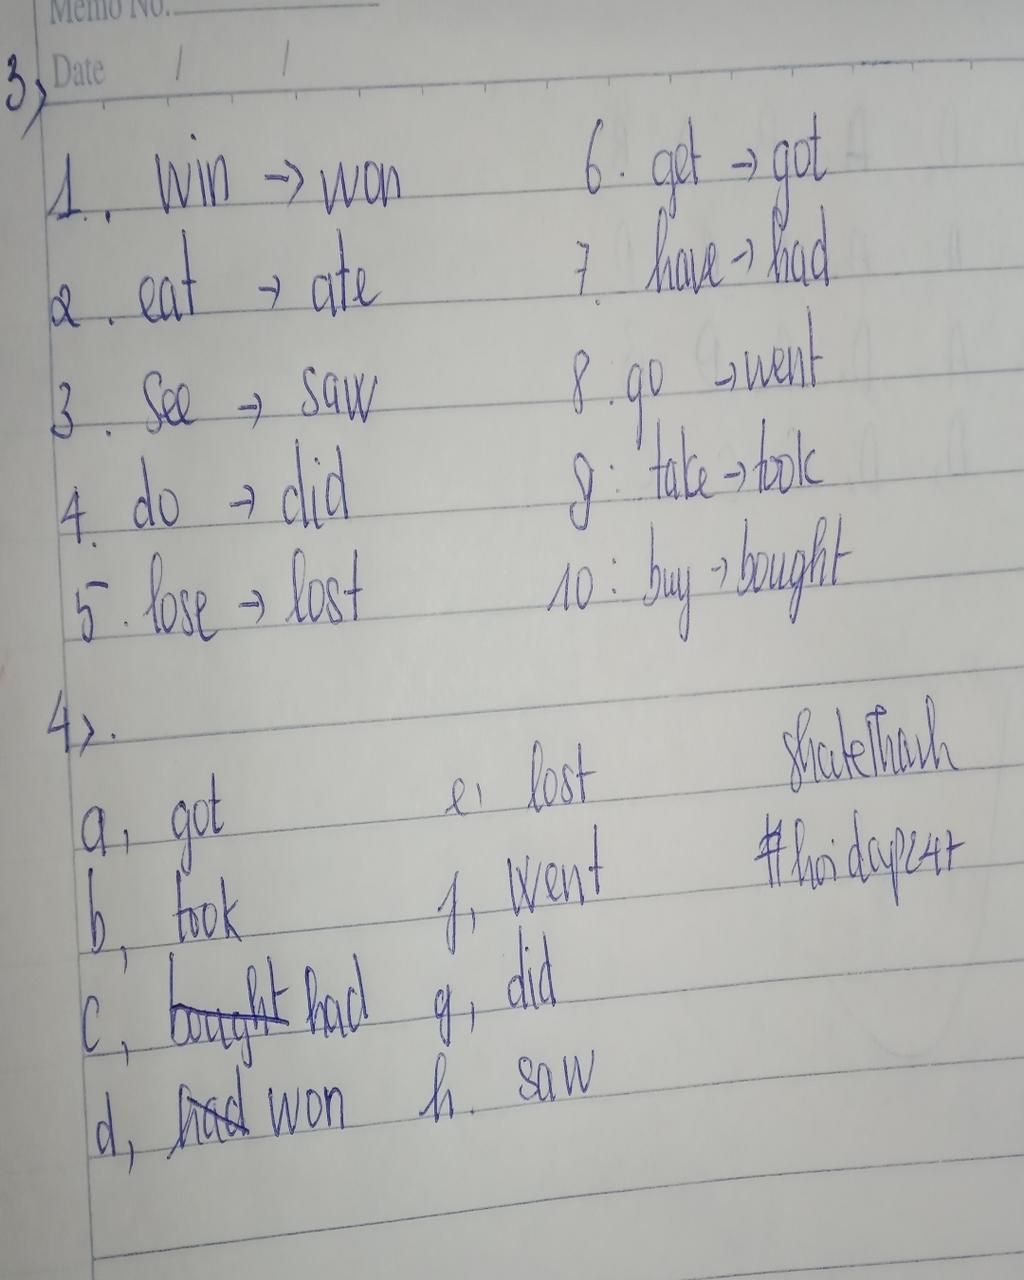 Memo No.
Date / /
3)
1. win → won
2. eat → ate
3. see → saw
4. do → did
5. lose → lost
6. get → got
7. have → had
8. go → went
9: take → took
10: buy → bought
4).
a, got
b, took
c, bought had
d, had won
e, lost
f, went
g, did
h. saw
#hoidap247